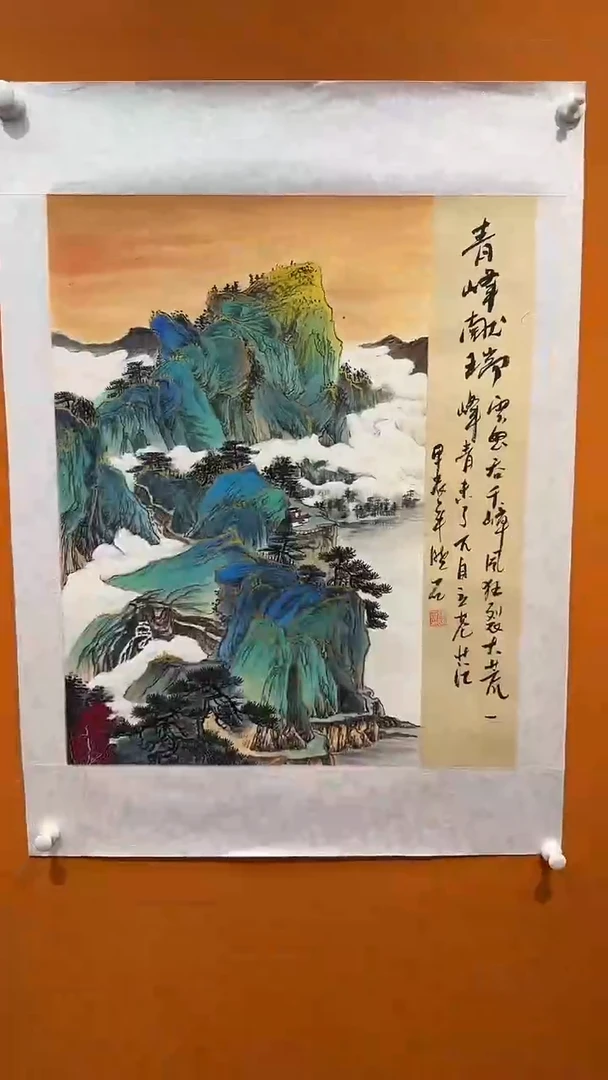 青峰献瑞
雲忽吞千嶂风狂裂大荒一
峰青未了万自立苍茫
甲辰年晓石